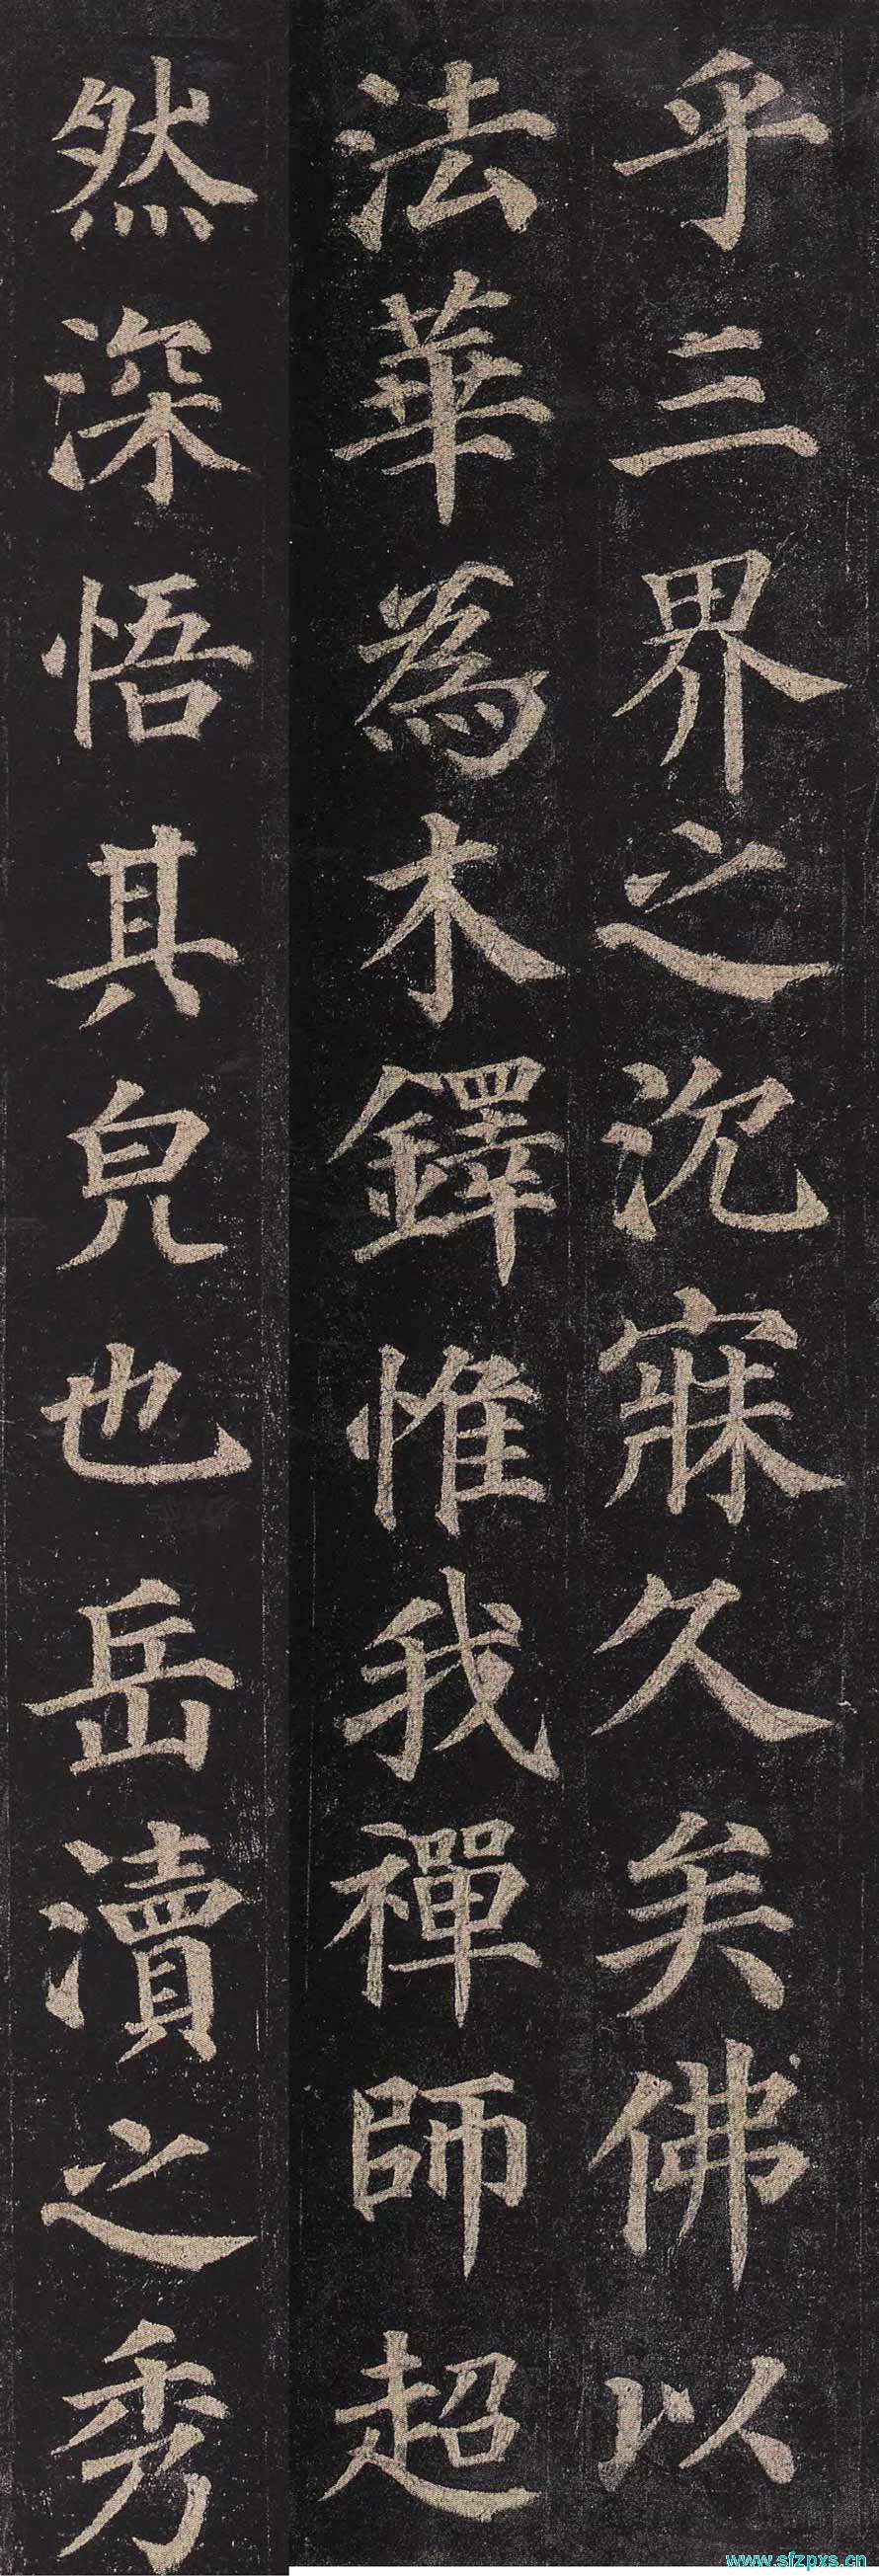 乎三界之沉寐久矣佛以
法華為木鐸惟我禪師超
然深悟其皃也岳瀆之秀
www.sfzpxs.cn